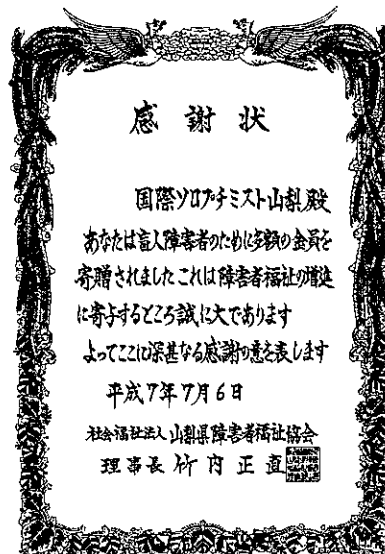 感謝状
国際ソロプチミスト山梨殿
あなたは盲人障害者のために多額の金員を
寄贈されましたこれは障害者福祉の増進
に寄与するところ誠に大であります
よってここに深甚なる感謝の意を表します
平成7年7月6日
社会福祉法人山梨県障害者福祉協会
理事長 竹内正直